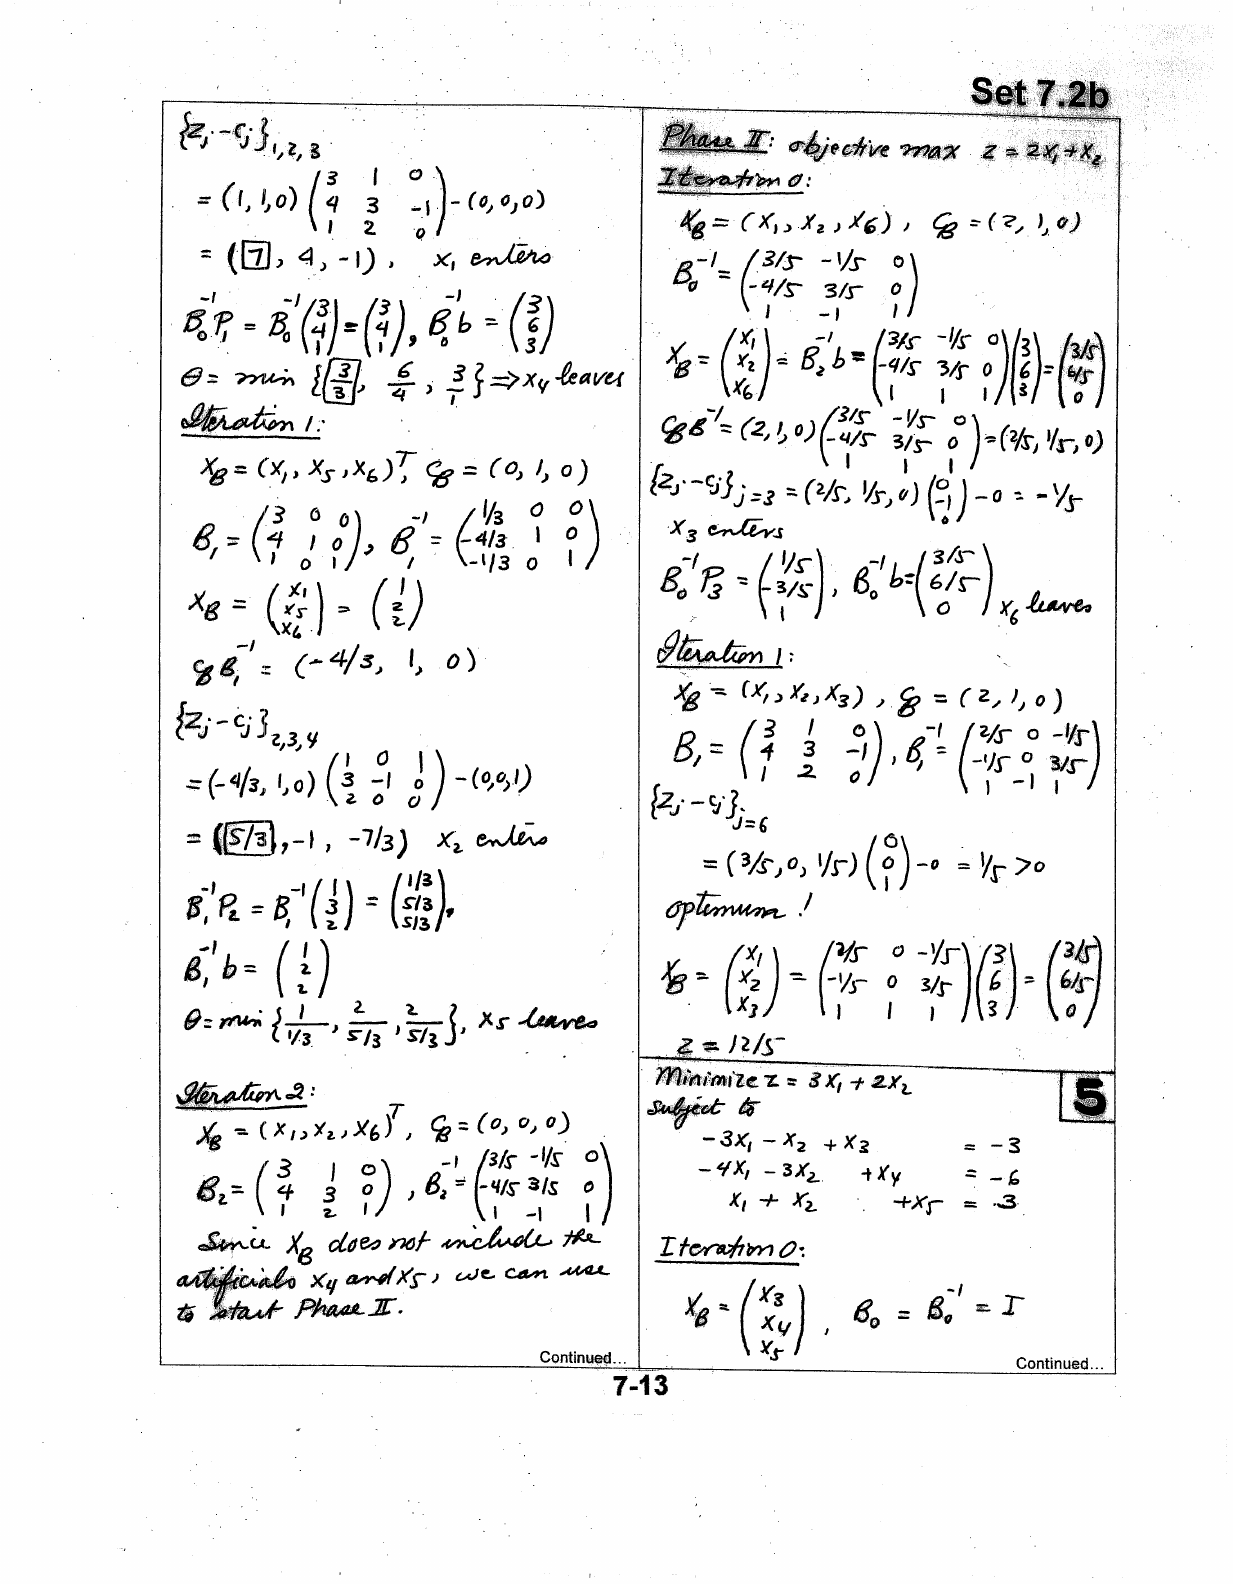 Set 7.2b
{zj - cj}1,2,3
= (1, 1, 0) (3 1 0; 4 3 -1; 1 2 0) - (0, 0, 0)
= (7, 4, -1), x1 enters
B0^-1 P1 = B0^-1 (3; 4; 1) = (3; 4; 1), B0^-1 b = (3; 6; 3)
θ = min {3/3, 6/4, 3/1} ⇒ x4 leaves
Iteration 1:
XB = (x1, x5, x6)^T, CB = (0, 1, 0)
B1 = (3 0 0; 4 1 0; 1 0 1), B1^-1 = (1/3 0 0; -4/3 1 0; -1/3 0 1)
XB = (x1; x5; x6) = (1; 2; 2)
CB B1^-1 = (-4/3, 1, 0)
{zj - cj}2,3,4
= (-4/3, 1, 0) (1 0 1; 3 -1 0; 2 0 0) - (0, 0, 1)
= (5/3, -1, -7/3) x2 enters
B1^-1 P2 = B1^-1 (1; 3; 2) = (1/3; 5/3; 5/3),
B1^-1 b = (1; 2; 2)
θ = min {1/(1/3), 2/(5/3), 2/(5/3)}, x5 leaves
Iteration 2:
XB = (x1, x2, x6)^T, CB = (0, 0, 0)
B2 = (3 1 0; 4 3 0; 1 2 1), B2^-1 = (3/5 -1/5 0; -4/5 3/5 0; 1 -1 1)
Since XB does not include the
artificials x4 and x5, we can use
to start Phase II.
Continued...
Phase II: objective max z = 2x1 + x2
Iteration 0:
XB = (x1, x2, x6), CB = (2, 1, 0)
B0^-1 = (3/5 -1/5 0; -4/5 3/5 0; 1 -1 1)
XB = (x1; x2; x6) = B2^-1 b = (3/5 -1/5 0; -4/5 3/5 0; 1 1 1) (3; 6; 3) = (3/5; 6/5; 0)
CB B^-1 = (2, 1, 0) (3/5 -1/5 0; -4/5 3/5 0; 1 1 1) = (2/5, 1/5, 0)
{zj - cj}j=3 = (2/5, 1/5, 0) (0; -1; 0) - 0 = -1/5
x3 enters
B0^-1 P3 = (1/5; -3/5; 1), B0^-1 b = (3/5; 6/5; 0) x6 leaves
Iteration 1:
XB = (x1, x2, x3), CB = (2, 1, 0)
B1 = (3 1 0; 4 3 -1; 1 2 0), B1^-1 = (2/5 0 -1/5; -1/5 0 3/5; 1 -1 1)
{zj - cj}j=6
= (3/5, 0, 1/5) (0; 0; 1) - 0 = 1/5 > 0
optimum!
XB = (x1; x2; x3) = (2/5 0 -1/5; -1/5 0 3/5; 1 1 1) (3; 6; 3) = (3/5; 6/5; 0)
z = 12/5
5
Minimize z = 3x1 + 2x2
Subject to
-3x1 - x2 + x3 = -3
-4x1 - 3x2 + x4 = -6
x1 + x2 + x5 = 3
Iteration 0:
XB = (x3; x4; x5), B0 = B0^-1 = I
Continued...
7-13